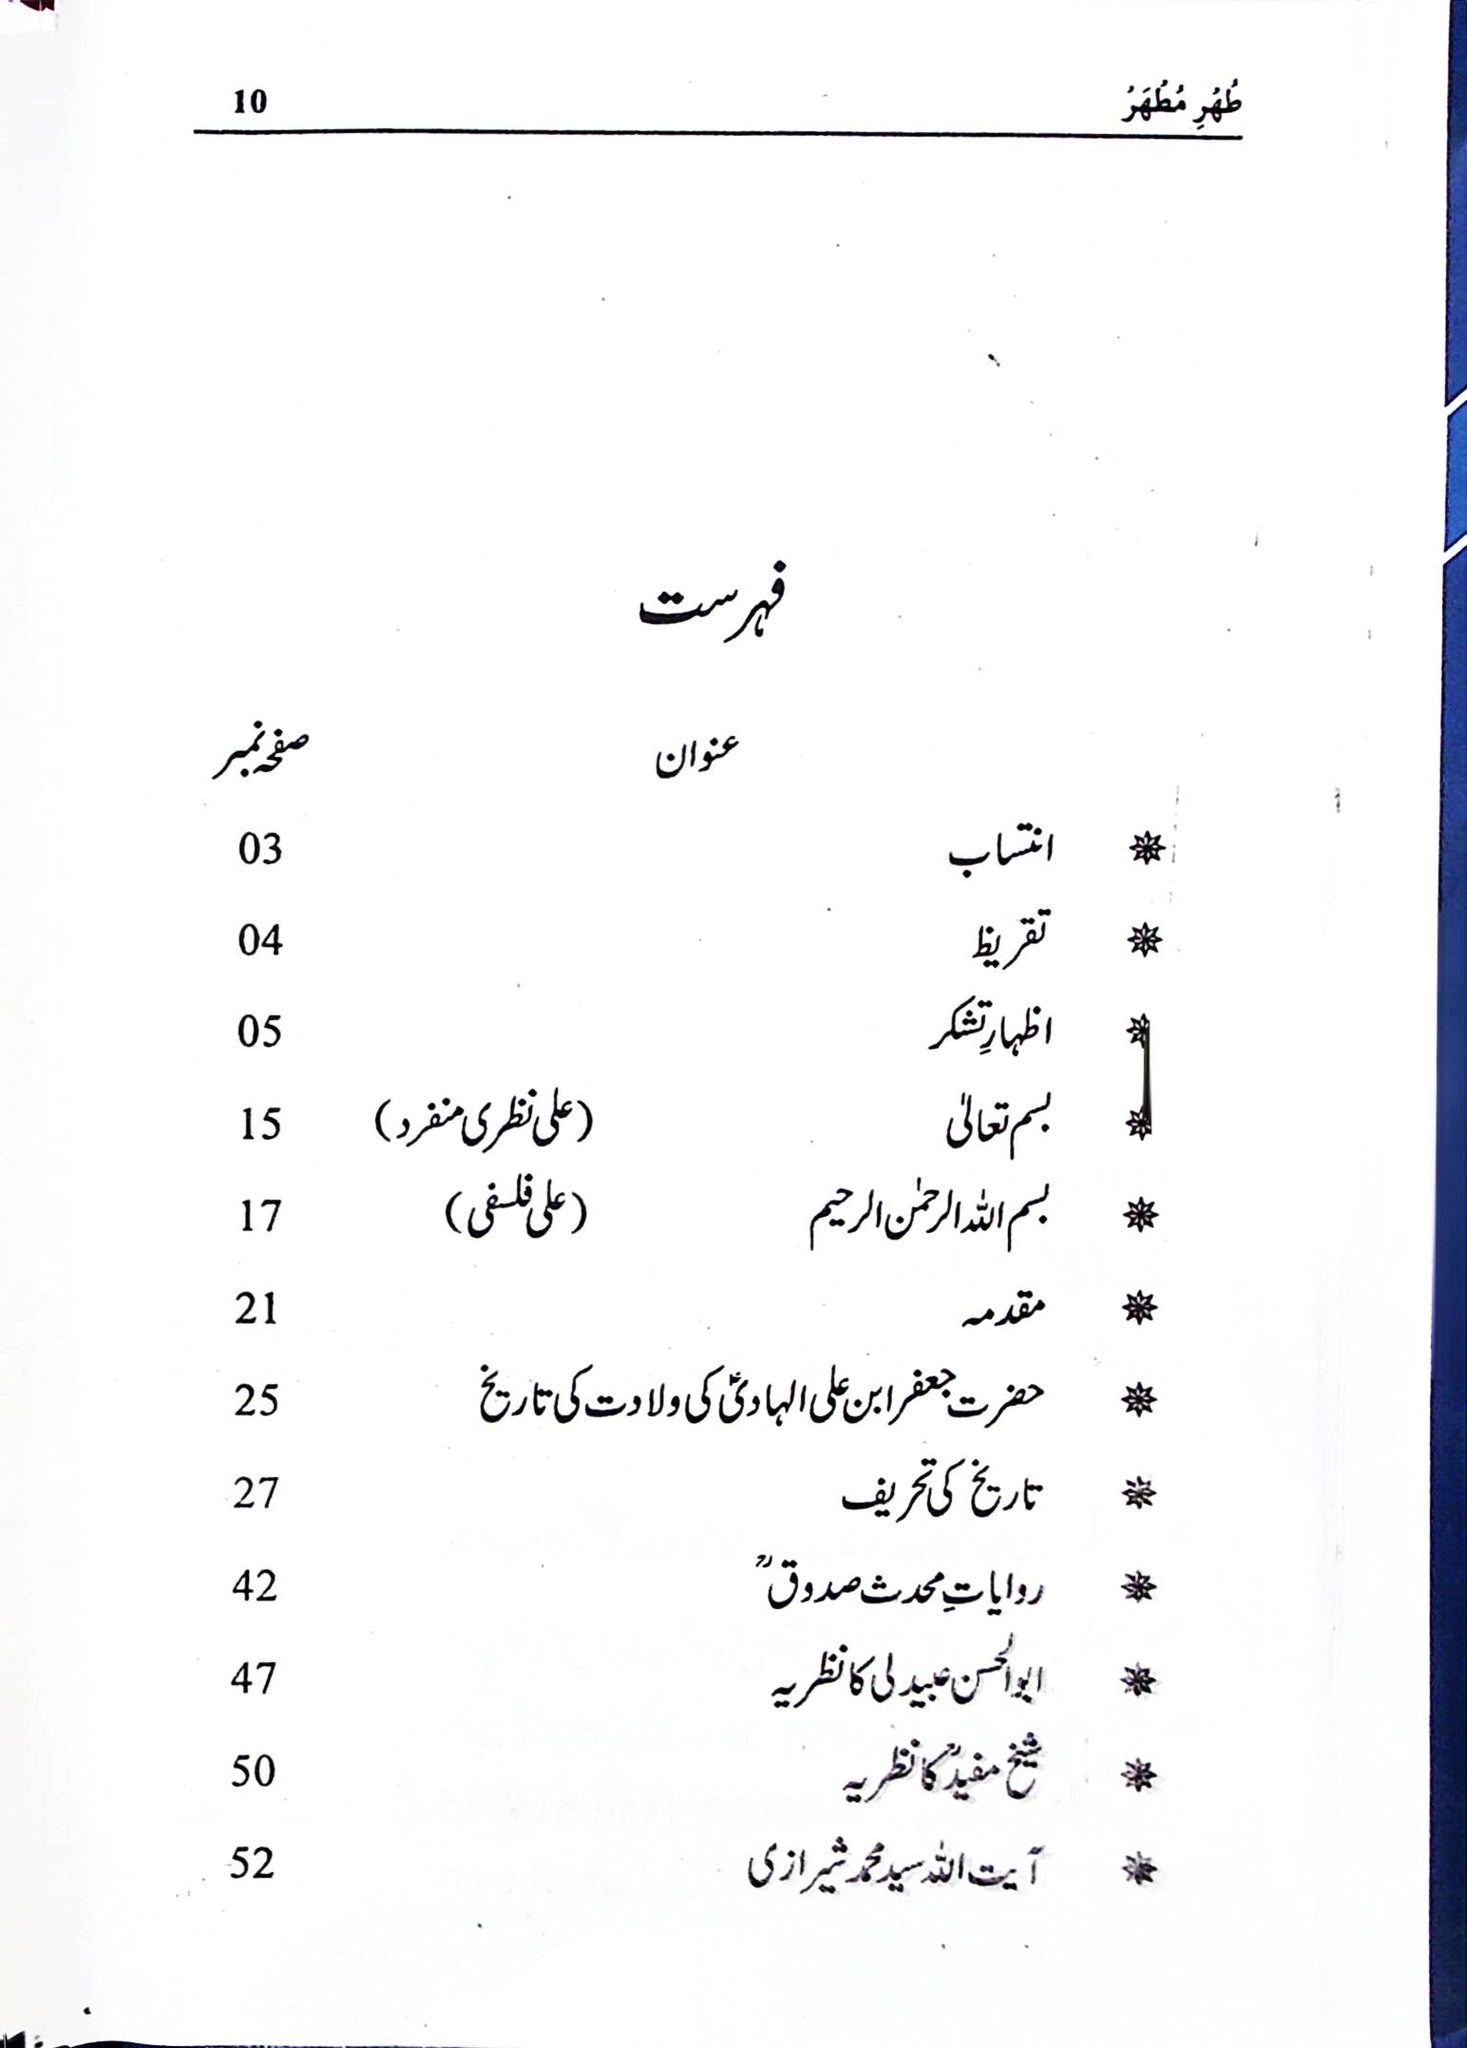 طُهْرِ مُطَهَرُ 10
فہرست
عنوان صفحہ نمبر
انتساب 03
تقریظ 04
اظہارِ تشکر 05
بسم تعالیٰ (علی نظری منفرد) 15
بسم اللہ الرحمٰن الرحیم (علی فلسفی) 17
مقدمہ 21
حضرت جعفر ابن علی الہادیؑ کی ولادت کی تاریخ 25
تاریخ کی تحریف 27
روایاتِ محدث صدوقؒ 42
ابوالحسن عبیدلی کا نظریہ 47
شیخ مفیدؒ کا نظریہ 50
آیت اللہ سید محمد شیرازی 52